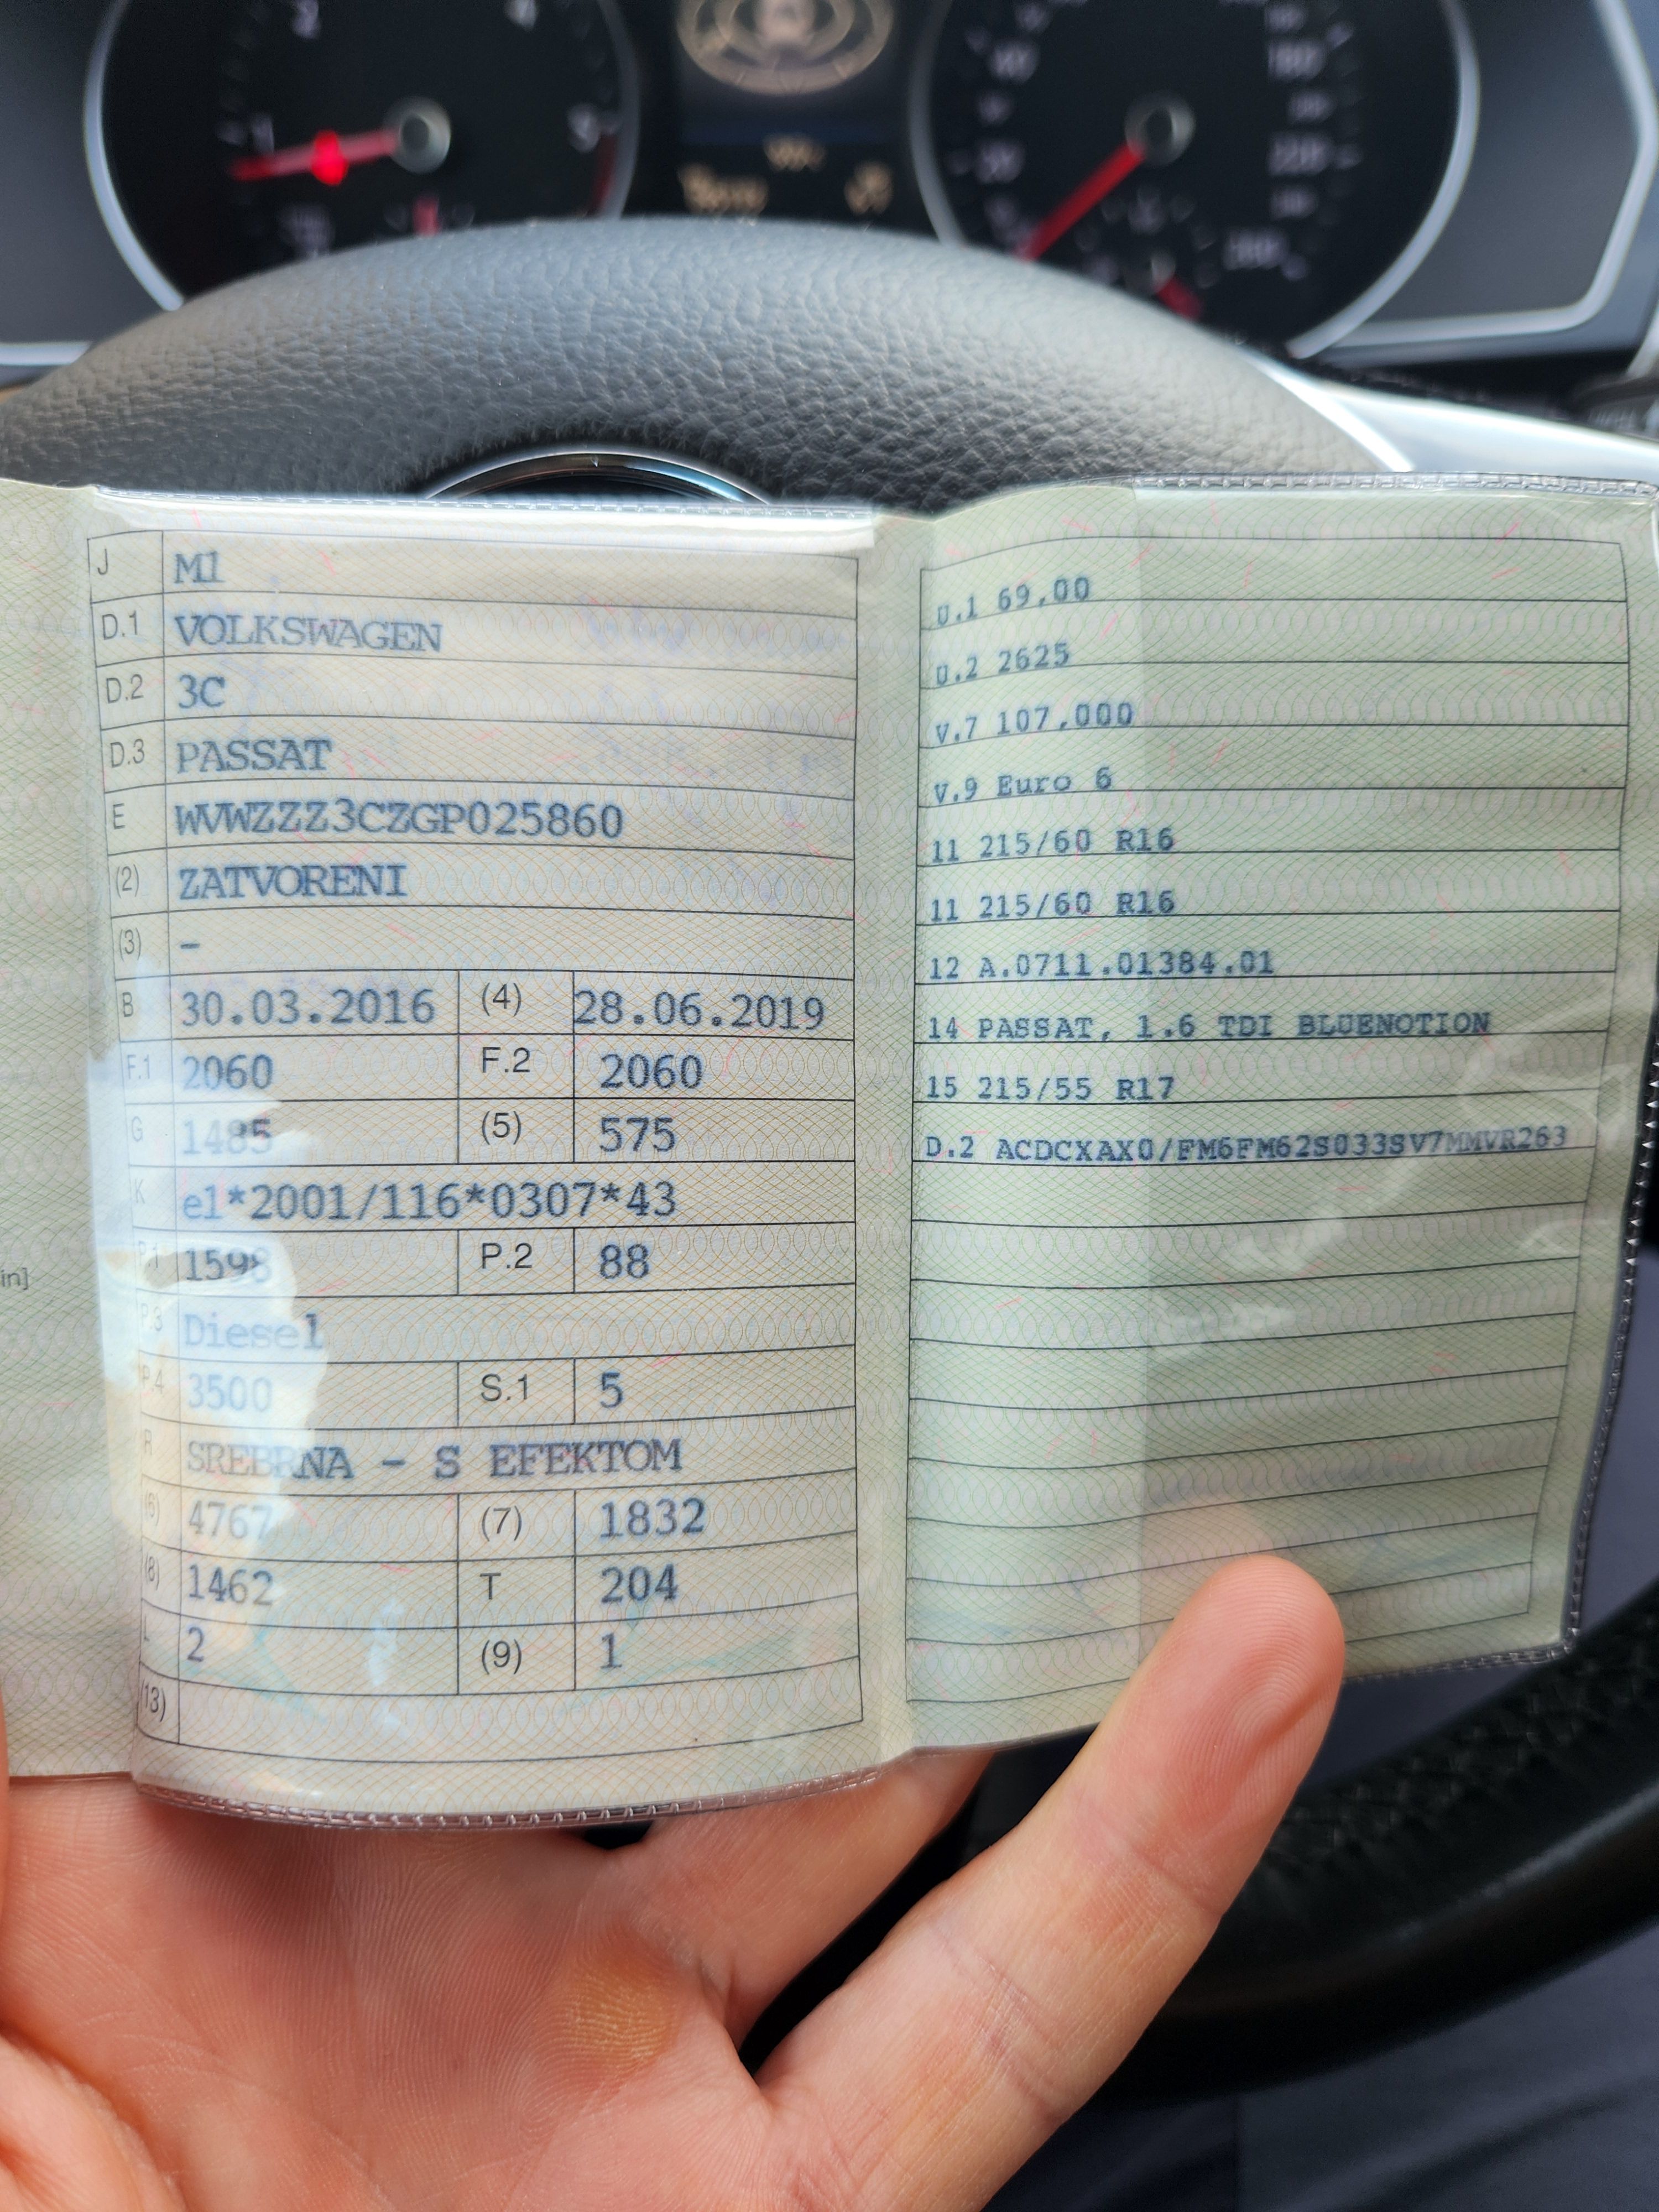 J M1
D.1 VOLKSWAGEN
D.2 3C
D.3 PASSAT
E WVWZZZ3CZGP025860
(2) ZATVORENI
(3) -
B 30.03.2016 (4) 28.06.2019
F.1 2060 F.2 2060
G 1485 (5) 575
K e1*2001/116*0307*43
P.1 1598 P.2 88
P.3 Diesel
P.4 3500 S.1 5
R SREBRNA - S EFEKTOM
(6) 4767 (7) 1832
(8) 1462 T 204
L 2 (9) 1
(13)
in]
U.1 69,00
U.2 2625
V.7 107,000
V.9 Euro 6
11 215/60 R16
11 215/60 R16
12 A.0711.01384.01
14 PASSAT, 1.6 TDI BLUENOTION
15 215/55 R17
D.2 ACDCXAX0/FM6FM62S033SV7MMVR263